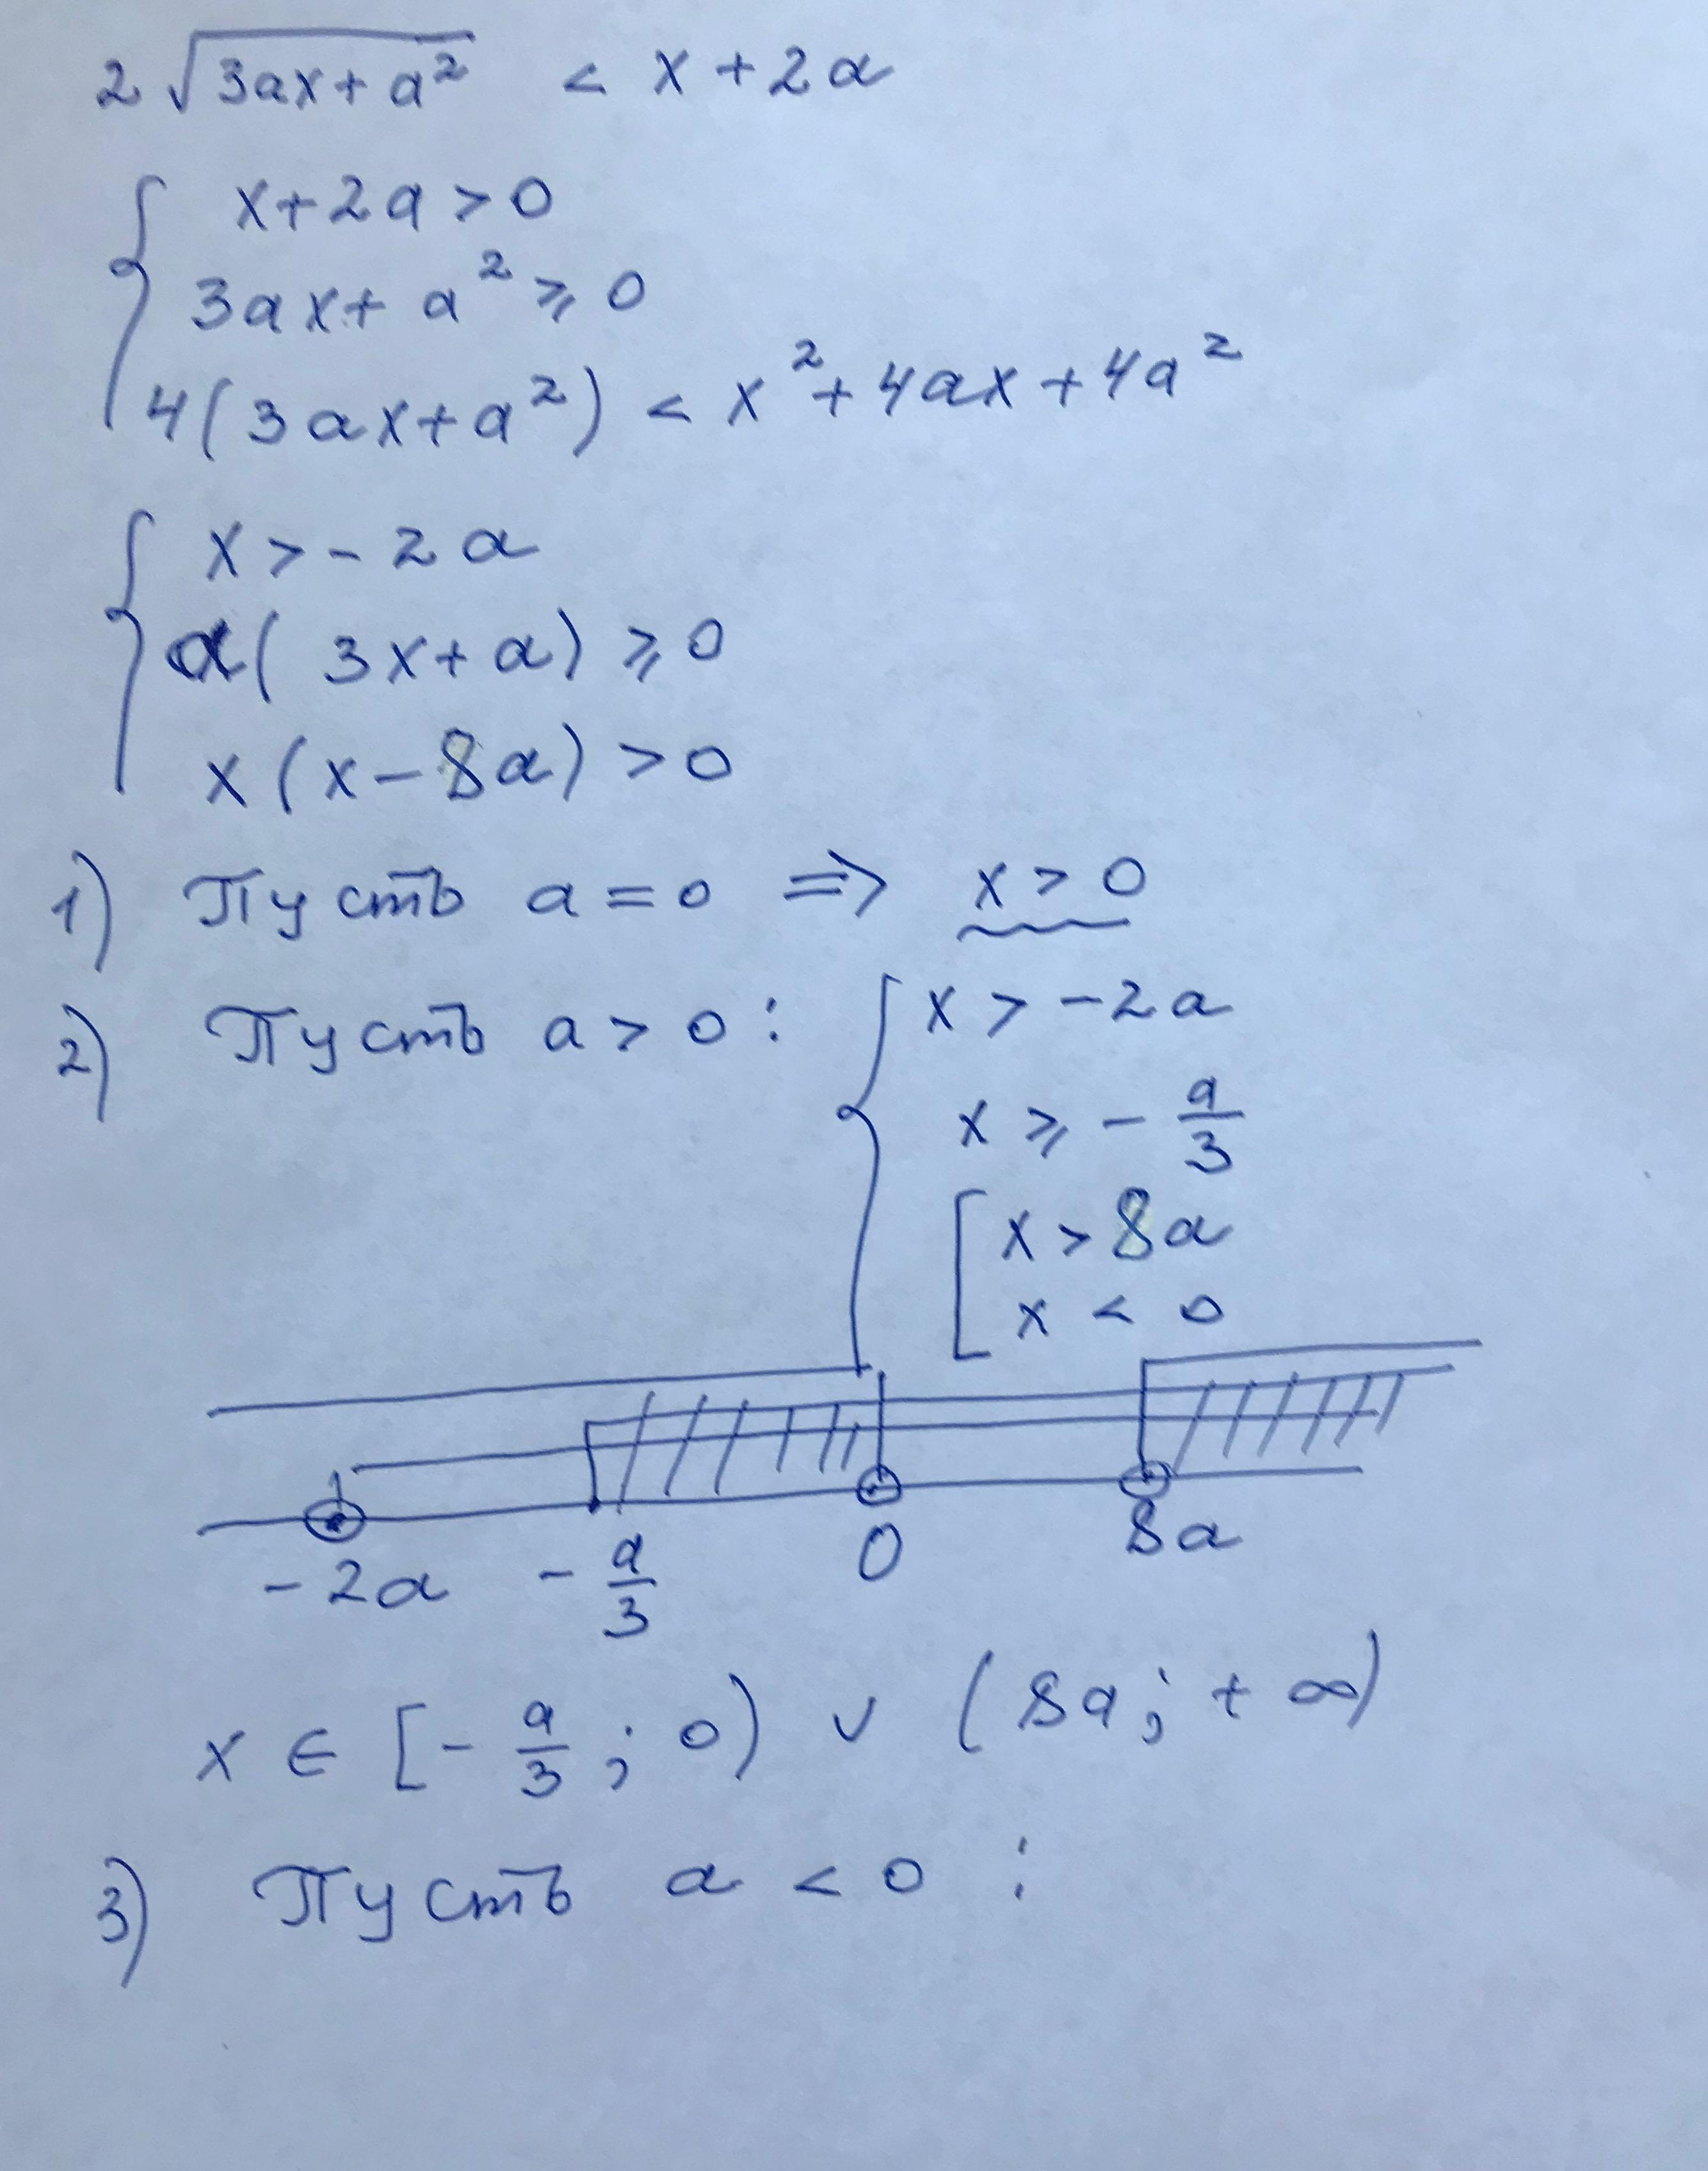 2√(3ax + a²) < x + 2a
x + 2a > 0
3ax + a² ⩾ 0
4(3ax + a²) < x² + 4ax + 4a²
x > -2a
a(3x + a) ⩾ 0
x(x - 8a) > 0
1) Пусть a = 0 ⇒ x > 0
2) Пусть a > 0 : x > -2a
x ⩾ - a/3
x > 8a
x < 0
-2a - a/3 0 8a
x ∈ [- a/3 ; 0) ∪ (8a ; +∞)
3) Пусть a < 0 :